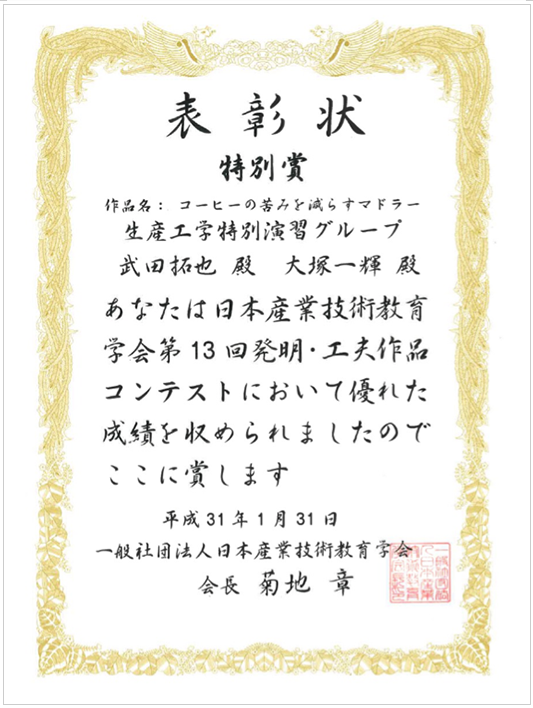 表彰状
特別賞
作品名： コーヒーの苦みを減らすマドラー
生産工学特別演習グループ
武田拓也 殿　大塚一輝 殿
あなたは日本産業技術教育
学会第13回発明・工夫作品
コンテストにおいて優れた
成績を収められましたので
ここに賞します
平成31年1月31日
一般社団法人日本産業技術教育学会
会長 菊地 章